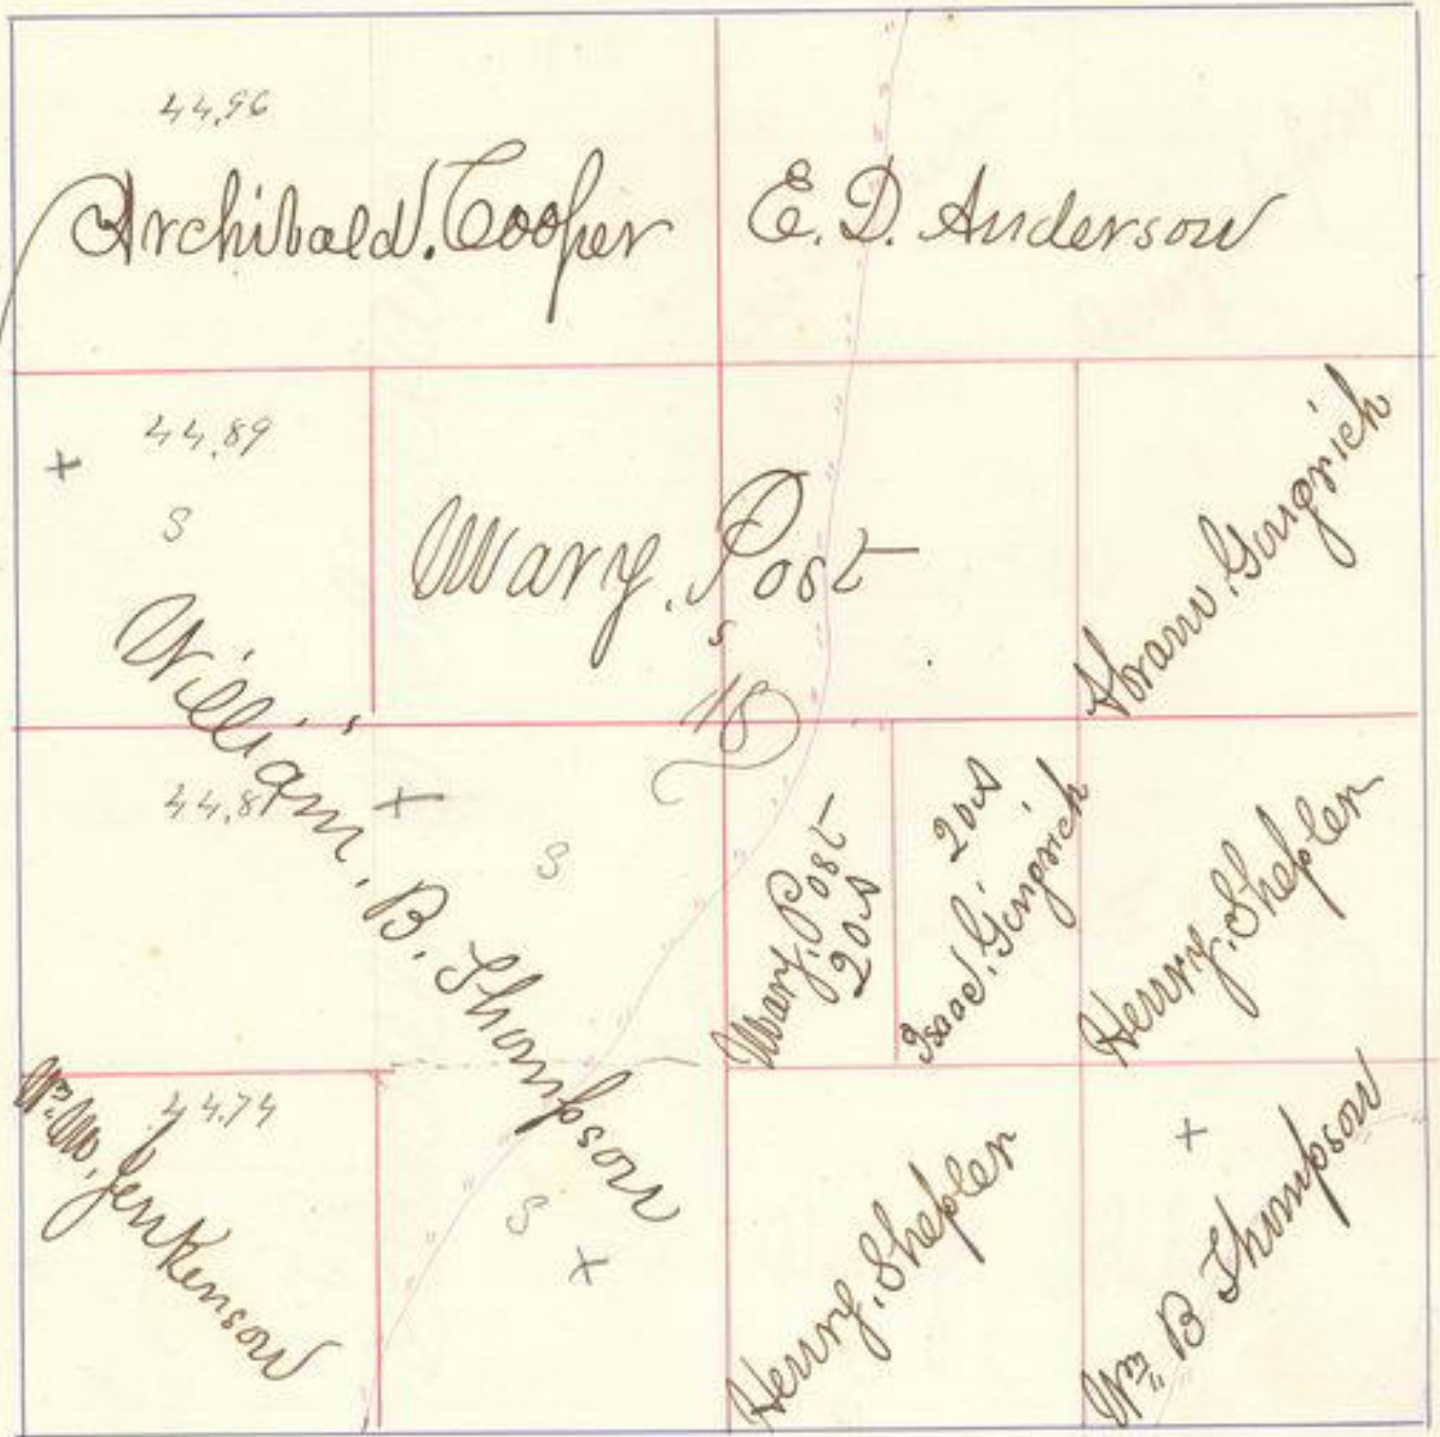 44.96
Archibald. Cooper
E. D. Anderson
44.89
+
S
Mary. Post
s
18
Abram. Gingrich
William. B. Thompson
s
44.8
+
S
Mary. Post
20A
20A
Isaac. Gingrich
Henry. Shepler
Wm. M. Jenkenson
44.74
S
+
Henry. Shepler
+
Wm. B Thompson